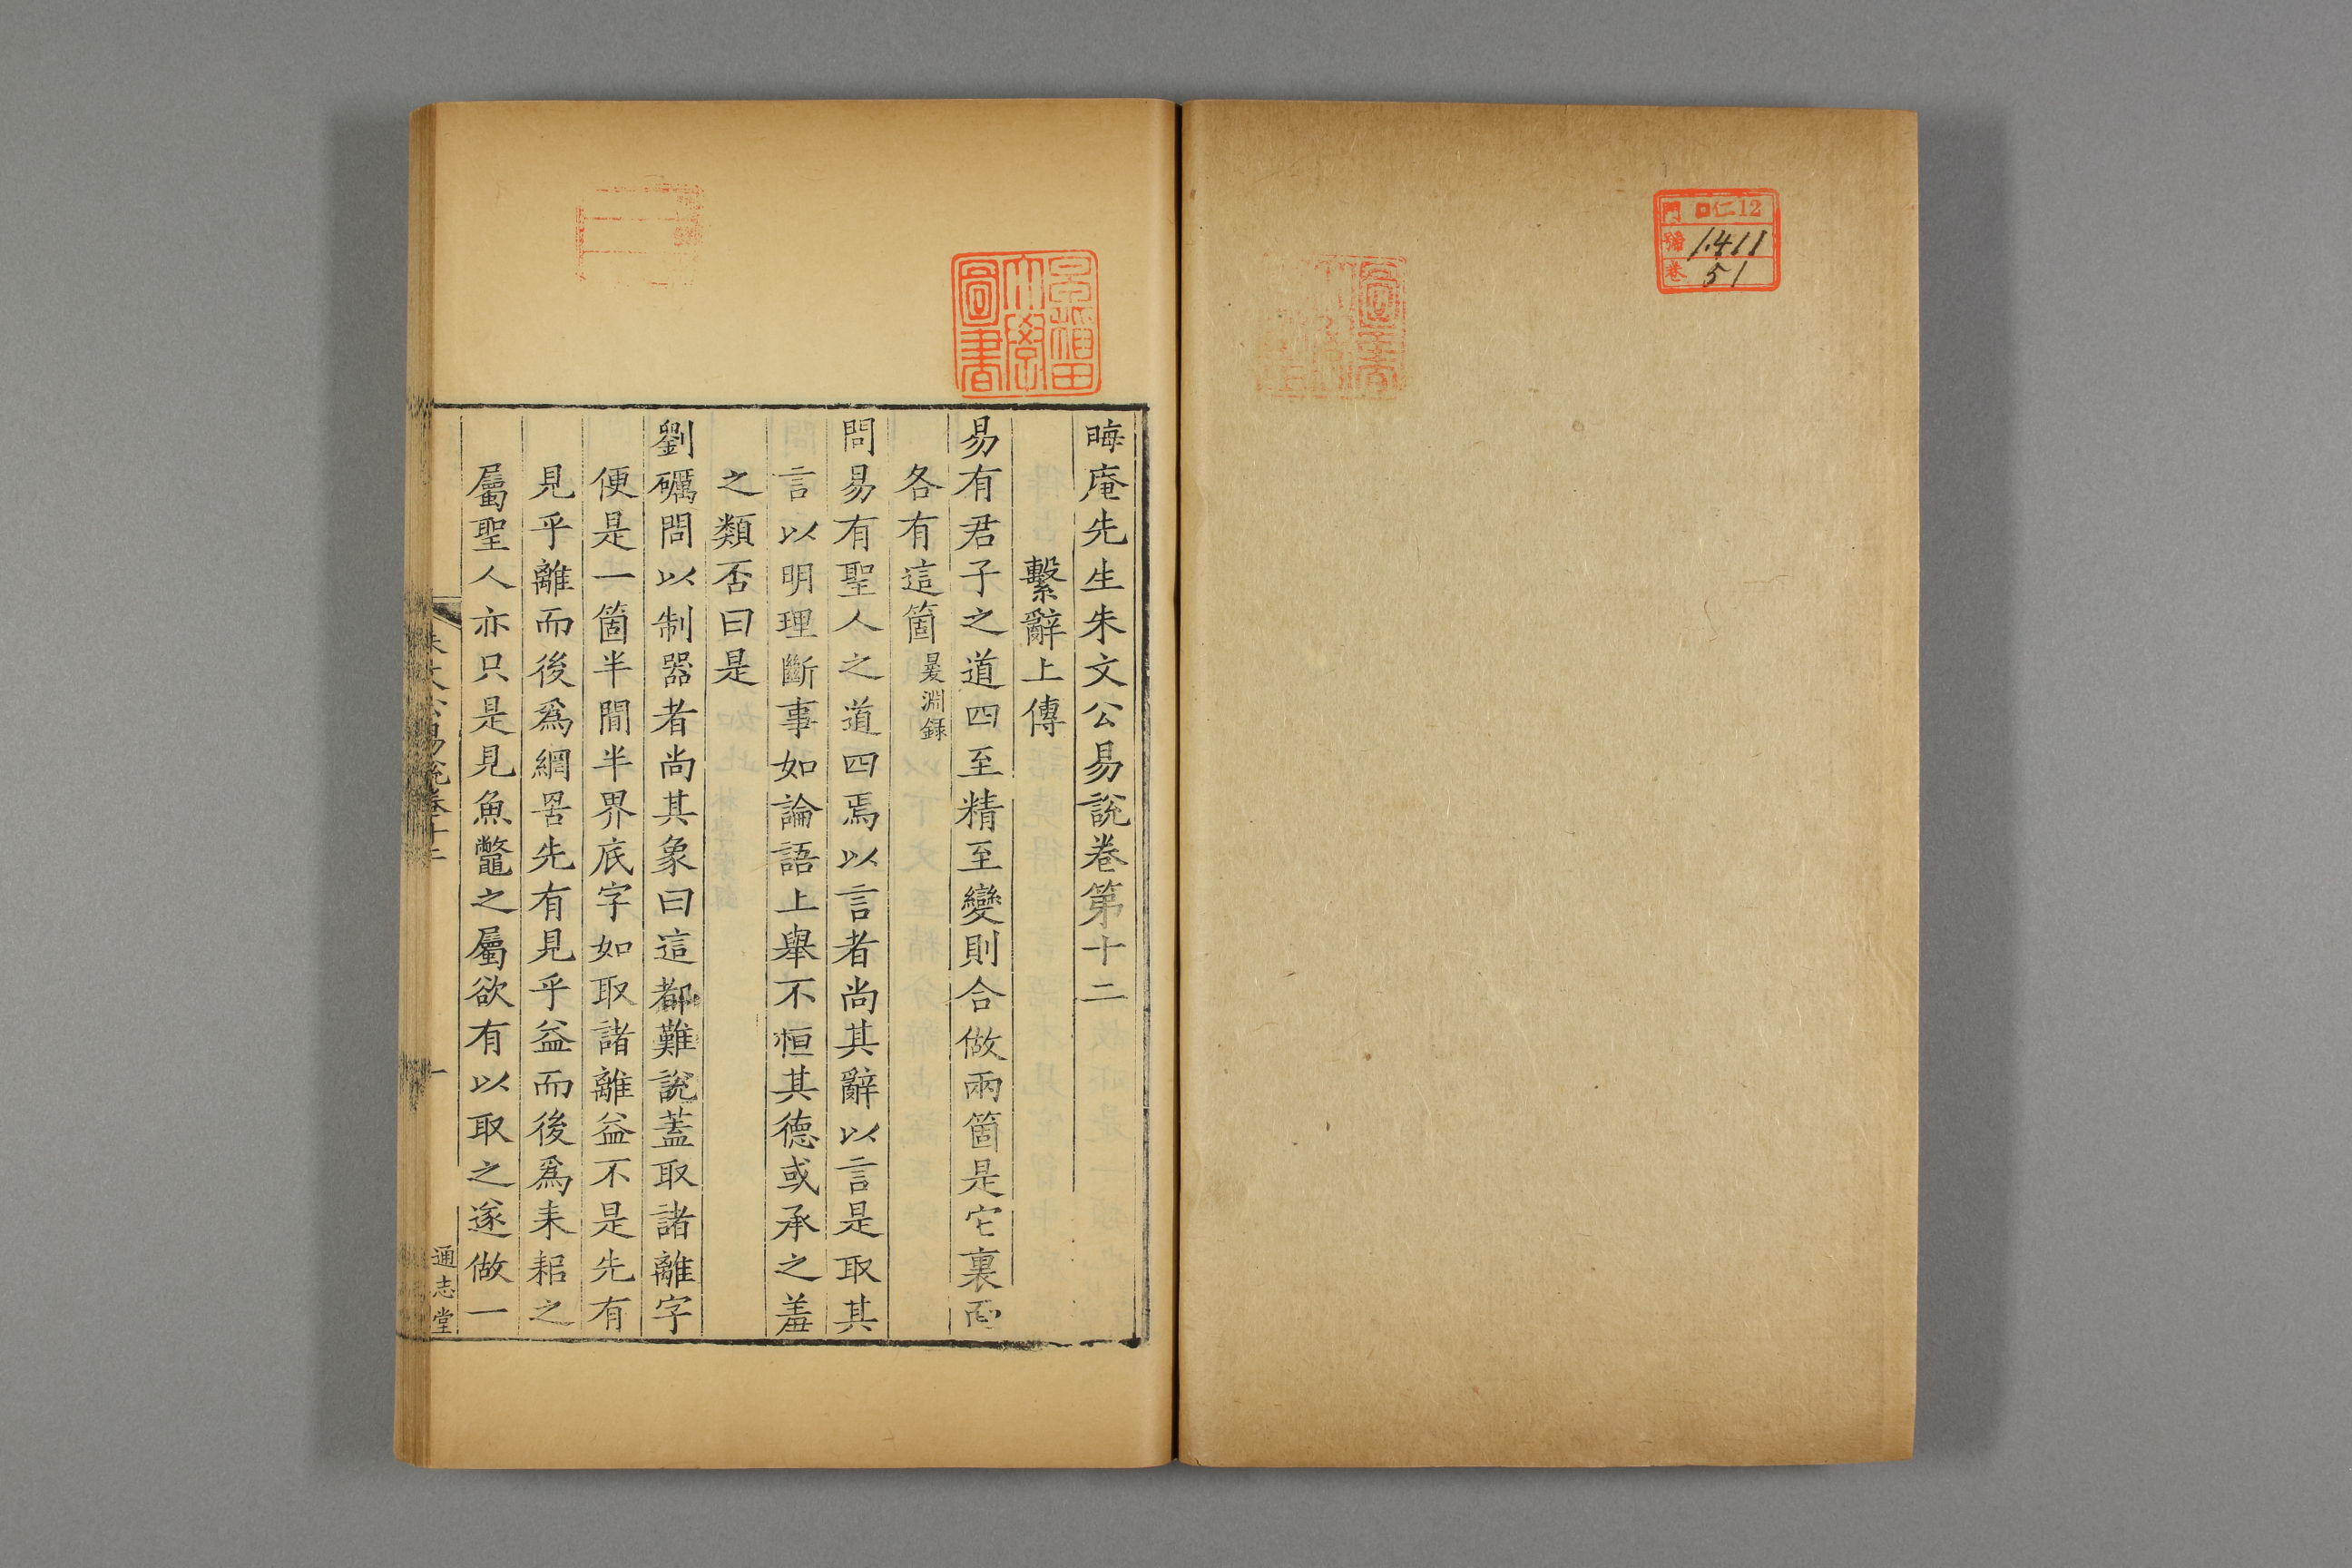 門 口仁12
號 1.411
卷 51
早稲田大學圖書
晦庵先生朱文公易說卷第十二
繫辭上傳
易有君子之道四至精至變則合做兩箇是它裏面
各有這箇㬊淵錄
問易有聖人之道四焉以言者尚其辭以言是取其
言以明理斷事如論語上舉不恒其德或承之羞
之類否曰是
劉礪問以制器者尚其象曰這都難說蓋取諸離字
便是一箇半間半界底字如取諸離益不是先有
見乎離而後爲網罟先有見乎益而後爲耒耜之
屬聖人亦只是見魚鼈之屬欲有以取之遂做一
朱文公易說卷十二
一
通志堂